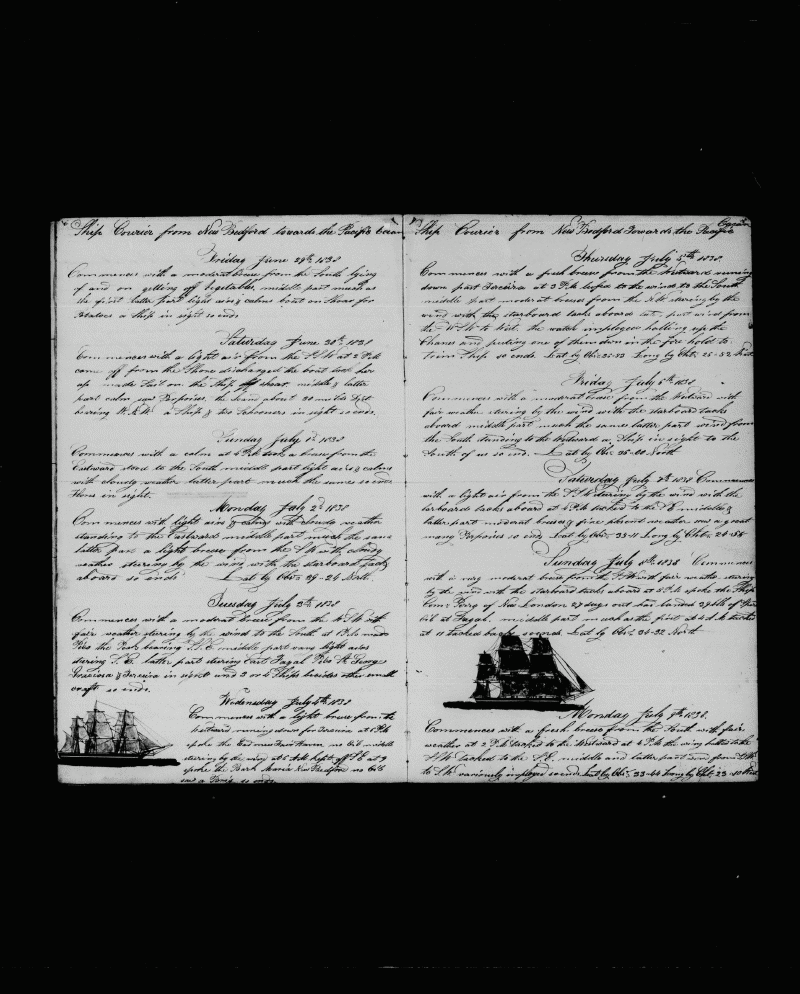 Ship Courier from New Bedford towards the Pacific Ocean
Friday June 29th 1838
Commences with a moderat brese from the South lying
of and on getting off vegetables middle part much as
the first latter part light airs & calms boat on shore for
Potatoes a Ship in sight so ends
Saturday June 30th 1838
Commences with a light air from the SW at 2 PM
came off from the Shore discharged the boat took her
up made Sail on the Ship middle & latter
part calm saw Porpoises the land about 30 miles dist
bearing a Ship & two Schooners in sight so ends
Sunday July 1st 1838
Commences with a calm at 4 PM took a brese from the
Eastward stood to the South middle part light airs & calms
with cloudy weather latter part much the same so ends
Flores in sight
Monday July 2d 1838
Commences with light airs & calms with cloudy weather
standing to the Eastward middle part much the same
latter part a light brese from the SW with cloudy
weather stering by the wind with the starboard tacks
aboard so ends Lat by Obs 39-24 North
Tuesday July 3th 1838
Commences with a moderat brese from the WSW with
fair weather stering by the wind to the South at 1 PM made
Pico the Peak bearing S.E. middle part vary light airs
stering S.E. latter part stering East Fayal Pico St George
Graciosa & Terceira in sight and 3 or 4 Ships besides other small
craft so ends
Wednesday July 4th 1838
Commences with a light brese from the
westward running down for Terceira at 1 PM
spoke the no oil middle
stering by the wing at 5 AM kept off SE at 9
spoke the Bark Maria New Bedford no oil
saw a so ends
Ship Courier from New Bedford Towards the Pacific Ocean
Thursday July 5th 1838
Commences with a fresh brese from the Westward running
down past Terceira at 3 PM lufed to the wind to the South
middle part moderat breses from the stering by the
wind with the starboard tacks aboard lat. part wind from
the WSW to West. the watch employed halling up the
Chanes and puting one of them down in the fore hold to
trim Ship so ends Lat by Obs Long by Chr. 25-52 West
Friday July 6th 1838
Commences with a moderat brese from the Westward with
fair weather stering by the wind with the starboard tacks
aboard middle part much the same latter part wind from
the South standing to the Westward a Ship in sight to the
South of us so end. Lat by Obs 35-20 North
Saturday July 7th 1838 Commences
with a light air from the SSW stering by the wind with the
larboard tacks aboard at 6 PM tacked to the SE middle &
latter part moderat breses & fine plesent weather saw a great
many Porpoises so ends Lat by Obs. 35-11 Long by Chr. 24-54
Sunday July 8th 1838 Commences
with a vary moderat brese from the SSW with fair weather stering
by the wind with the starboard tacks aboard at 5 PM spoke the Ship
Com. Perry of New London 27 days out has landed 29 bbls of
oil at Fayal. middle part much as the first at 4 AM tacked
at 11 tacked back so ends Lat by Obs. 34-32 North
Monday July 9th 1838.
Commences with a fresh brese from the South with fair
weather at 2 PM tacked to the Westward at 4 PM the wing hailed to the
SW Tacked to the S.E. middle and latter part wind from
to SW variously imployed so ends Lat by Obs. 33-44 Long by Chr. 23-10 West